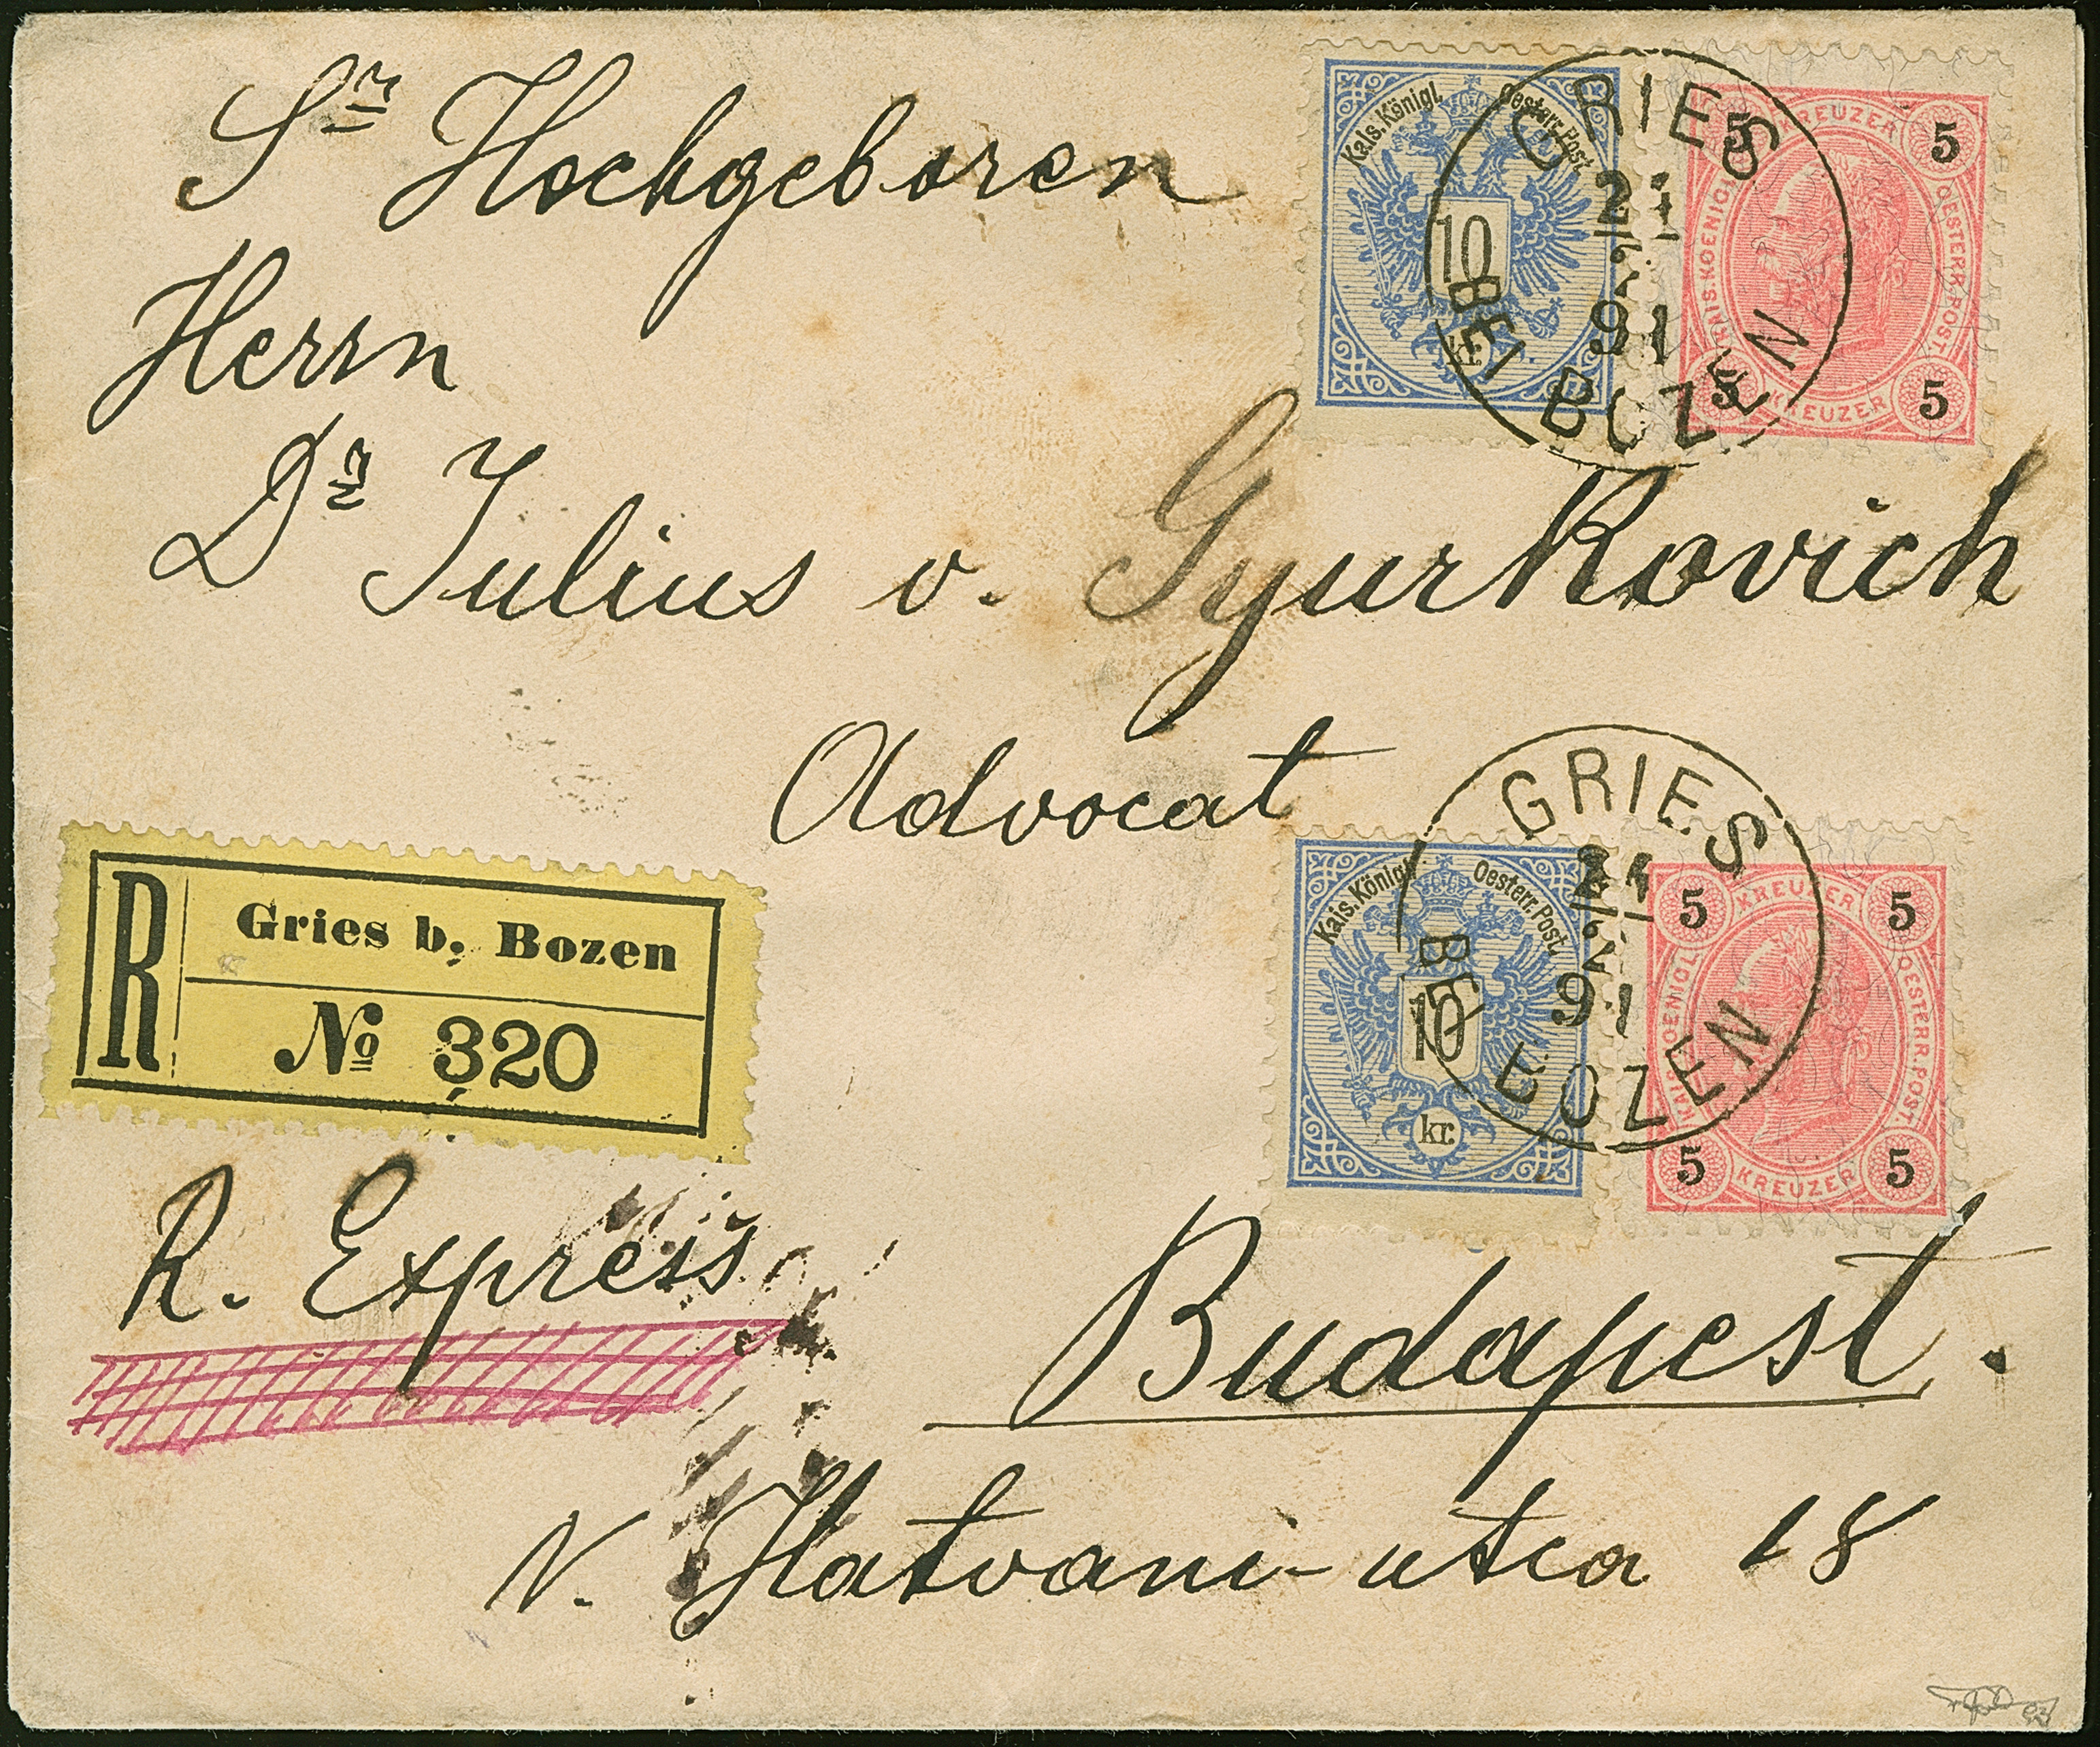 Sr Hochgeboren
Herrn
Dr Julius v. Gyurkovich
Advocat
R. Express
Budapest.
N. Hatvani-utca 18
R
Gries b. Bozen
No 320
Kais. Königl. Oesterr. Post.
10
kr.
KREUZER
5 5
KAIS. KOENIGL. OESTERR. POST.
5 5
KREUZER
GRIES
21
91
BEI BOZEN
Kais. Königl. Oesterr. Post.
10
kr.
KREUZER
5 5
KAIS. KOENIGL. OESTERR. POST.
5 5
KREUZER
GRIES
21
91
BEI BOZEN